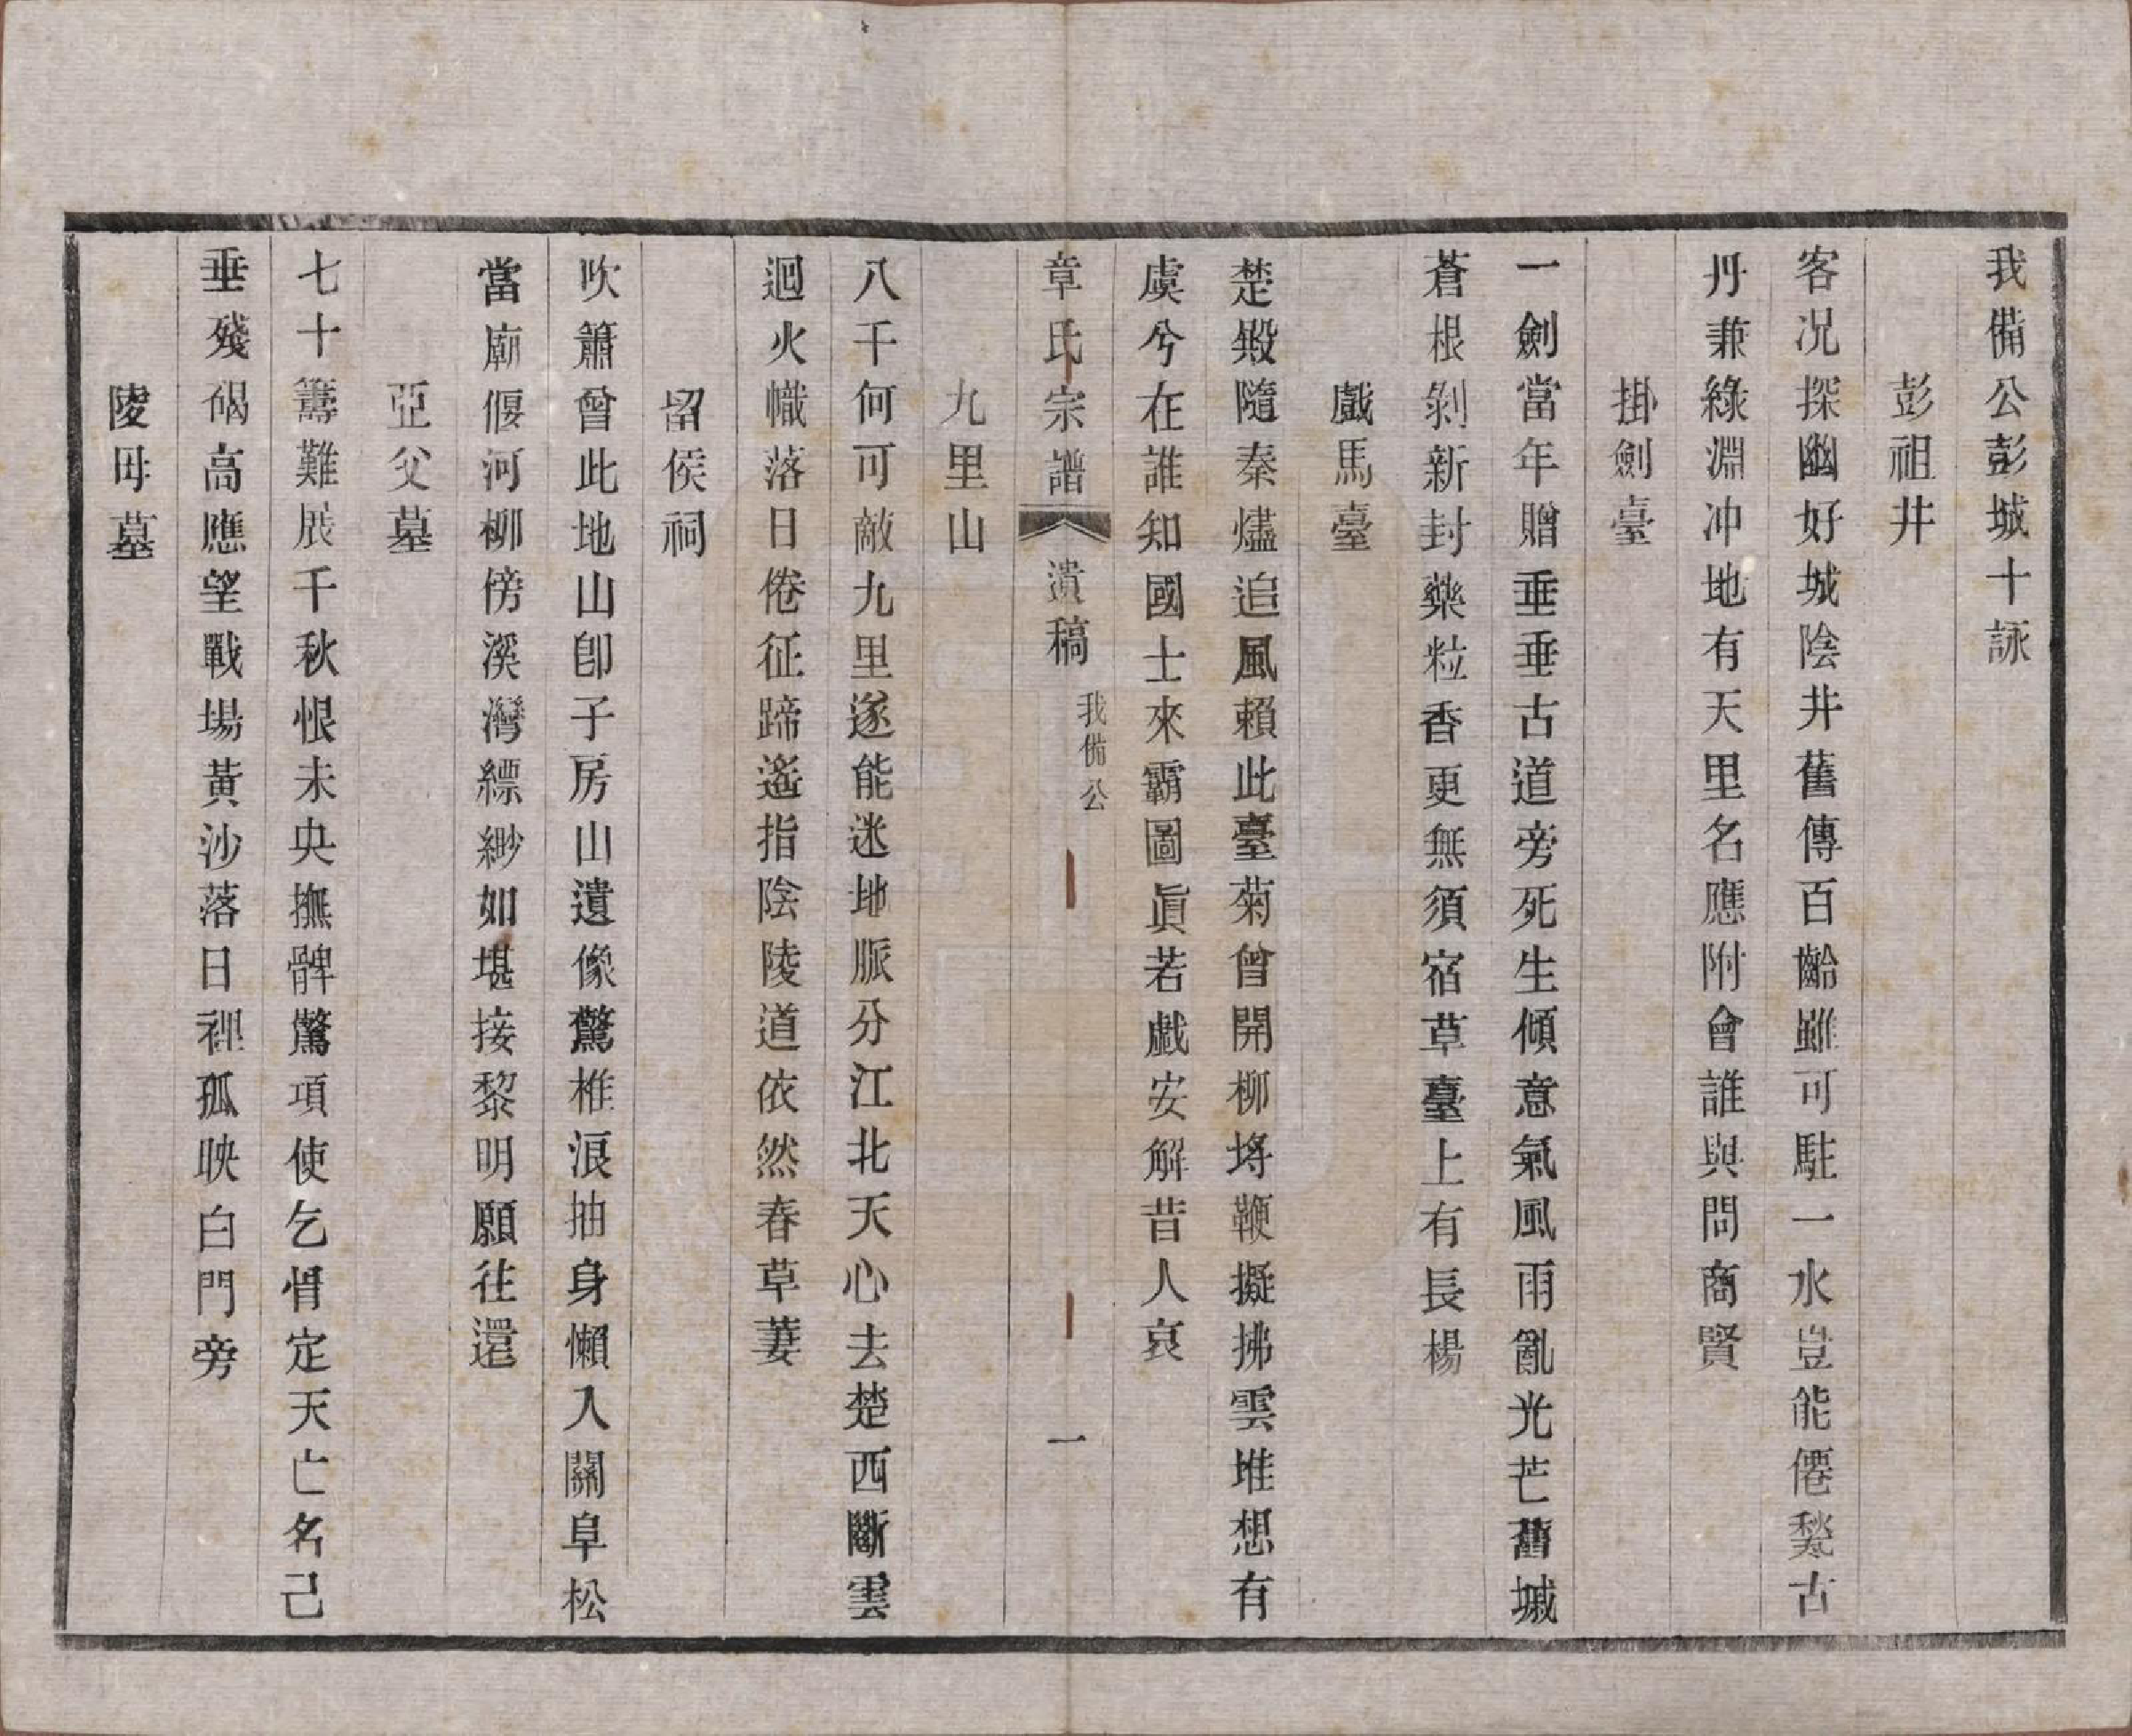 我備公彭城十詠
彭祖井
客况探幽好城陰井舊傳百齡雖可駐一水豈能僊甃古
丹兼綠淵冲地有天里名應附會誰與問商賢
掛劍臺
一劍當年贈垂垂古道旁死生傾意氣風雨亂光芒舊城
蒼根剝新封藥粒香更無須宿草臺上有長楊
戲馬臺
楚毀隨秦燼追風賴此臺菊曾開柳埓鞭擬拂雲堆想有
虞兮在誰知國士來霸圖眞若戱安解昔人哀
章氏宗譜 遺稿 我備公 一
九里山
八千何可敵九里遂能迷地脈分江北天心去楚西斷雲
迴火幟落日倦征蹄遙指陰陵道依然春草萋
留侯祠
吹簫曾此地山卽子房山遺像驚椎浪抽身懶入關阜松
當廟偃河柳傍溪灣縹緲如堪接黎明願往還
亞父墓
七十籌難展千秋恨未央撫髀驚項使乞骨定天亡名已
垂殘碣高應望戰場黃沙落日裡孤映白門旁
陵母墓